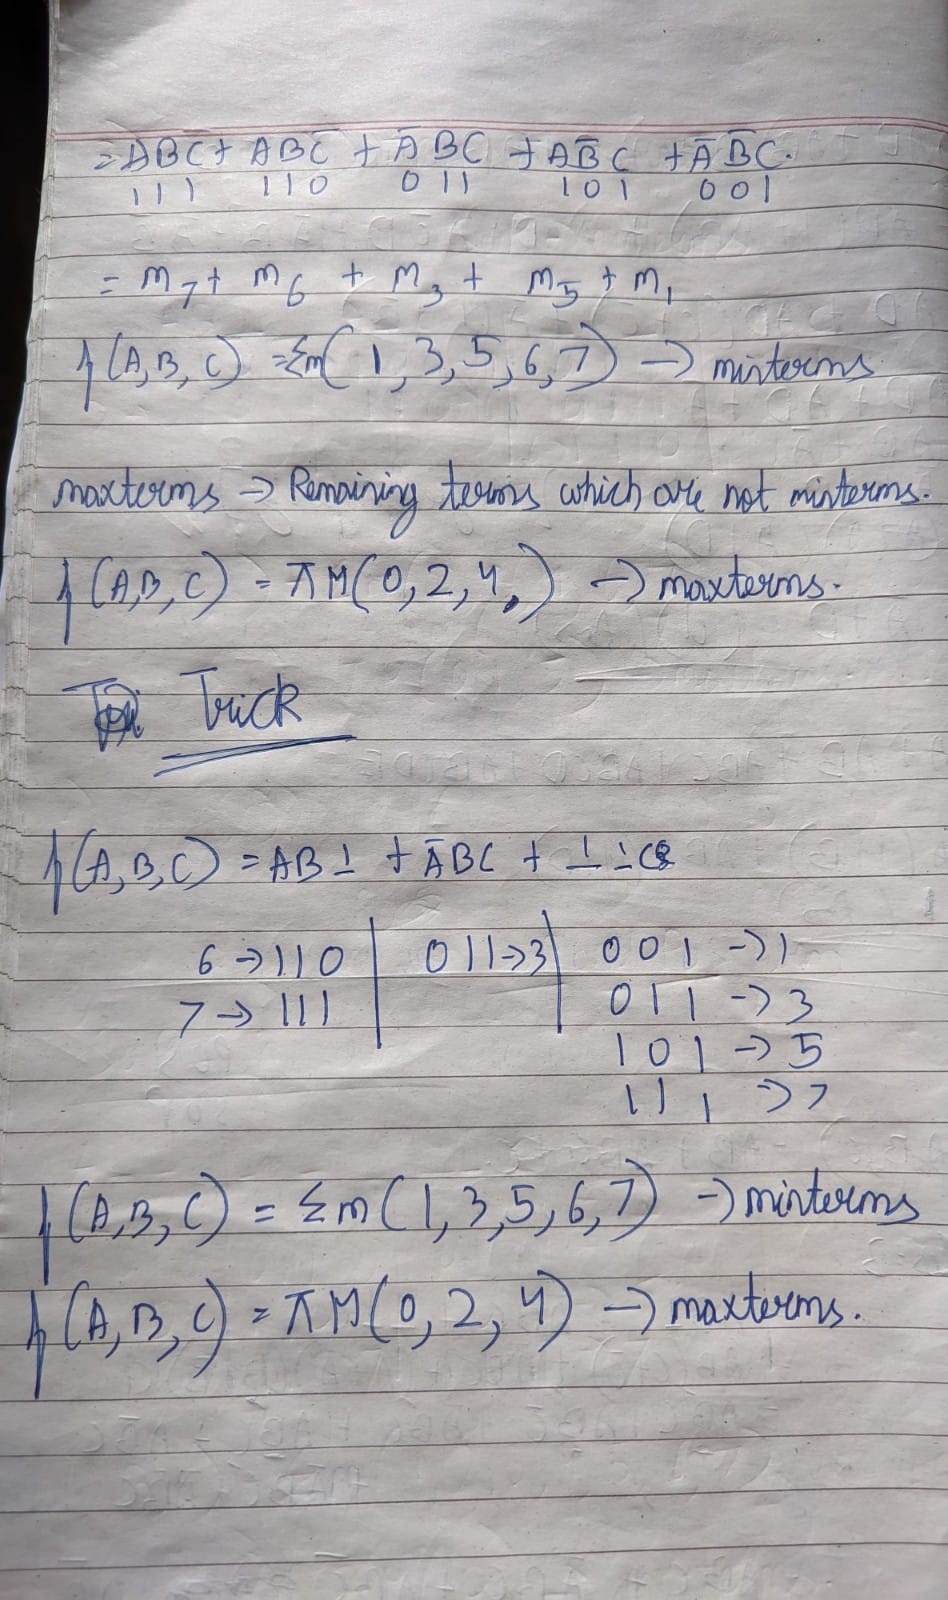 = ABC + ABC̅ + A̅BC + AB̅C + A̅B̅C.
111 110 011 101 001
= m₇ + m₆ + m₃ + m₅ + m₁
f(A,B,C) = Σm(1,3,5,6,7) → minterms
maxterms → Remaining terms which are not minterms.
f(A,B,C) = πM(0,2,4,) → maxterms.
Trick
f(A,B,C) = AB⊥ + A̅BC + ⊥⊥C
6 → 110 | 011 → 3 | 001 → 1
7 → 111 | | 011 → 3
101 → 5
111 → 7
f(A,B,C) = Σm(1,3,5,6,7) → minterms
f(A,B,C) = πM(0,2,4) → maxterms.